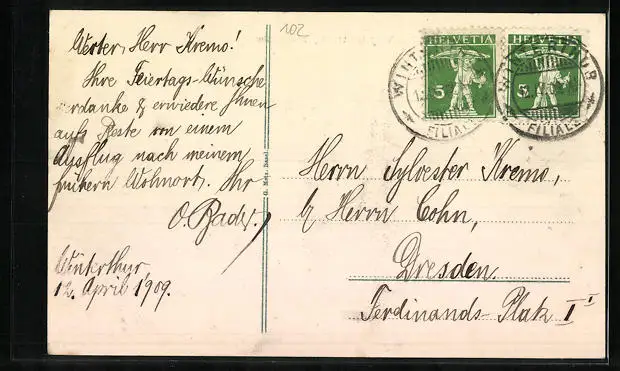 102
Werter Herr Kremo!
Ihre Feiertags-Wünsche
verdanke & erwiedere Ihnen
aufs Beste von einem
Ausflug nach meinem
frühern Wohnort. Ihr
O. Bader.
Winterthur,
12. April 1909.
HELVETIA
5
HELVETIA
5
WINTERTHUR
FILIALE
Herrn Sylvester Kremo,
b/ Herrn Cohn,
Dresden.
Ferdinands-Platz I